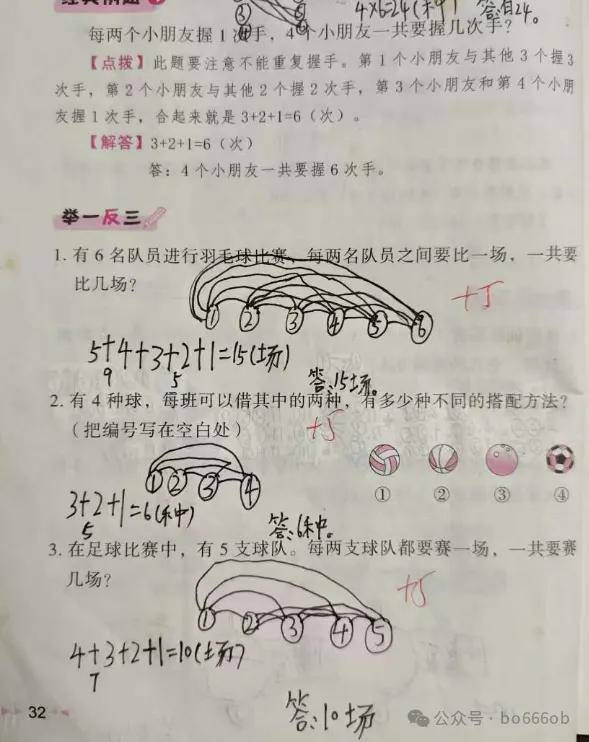 4×6=24(种) 答:有24。
每两个小朋友握1次手，4个小朋友一共要握几次手？
【点拨】此题要注意不能重复握手。第1个小朋友与其他3个握3
次手，第2个小朋友与其他2个握2次手，第3个小朋友和第4个小朋
友握1次手，合起来就是3+2+1=6（次）。
【解答】3+2+1=6（次）
答：4个小朋友一共要握6次手。
举一反三
1. 有6名队员进行羽毛球比赛，每两名队员之间要比一场，一共要
比几场？
① ② ③ ④ ⑤ ⑥
+5
5+4+3+2+1=15(场)
9 5
答:15场。
2. 有4种球，每班可以借其中的两种，有多少种不同的搭配方法？
（把编号写在空白处）
+5
① ② ③ ④
① ② ③ ④
3+2+1=6(种)
5
答:6种。
3. 在足球比赛中，有5支球队。每两支球队都要赛一场，一共要赛
几场？
+5
① ② ③ ④ ⑤
4+3+2+1=10(场)
7
答:10场
32
公众号·bo666ob